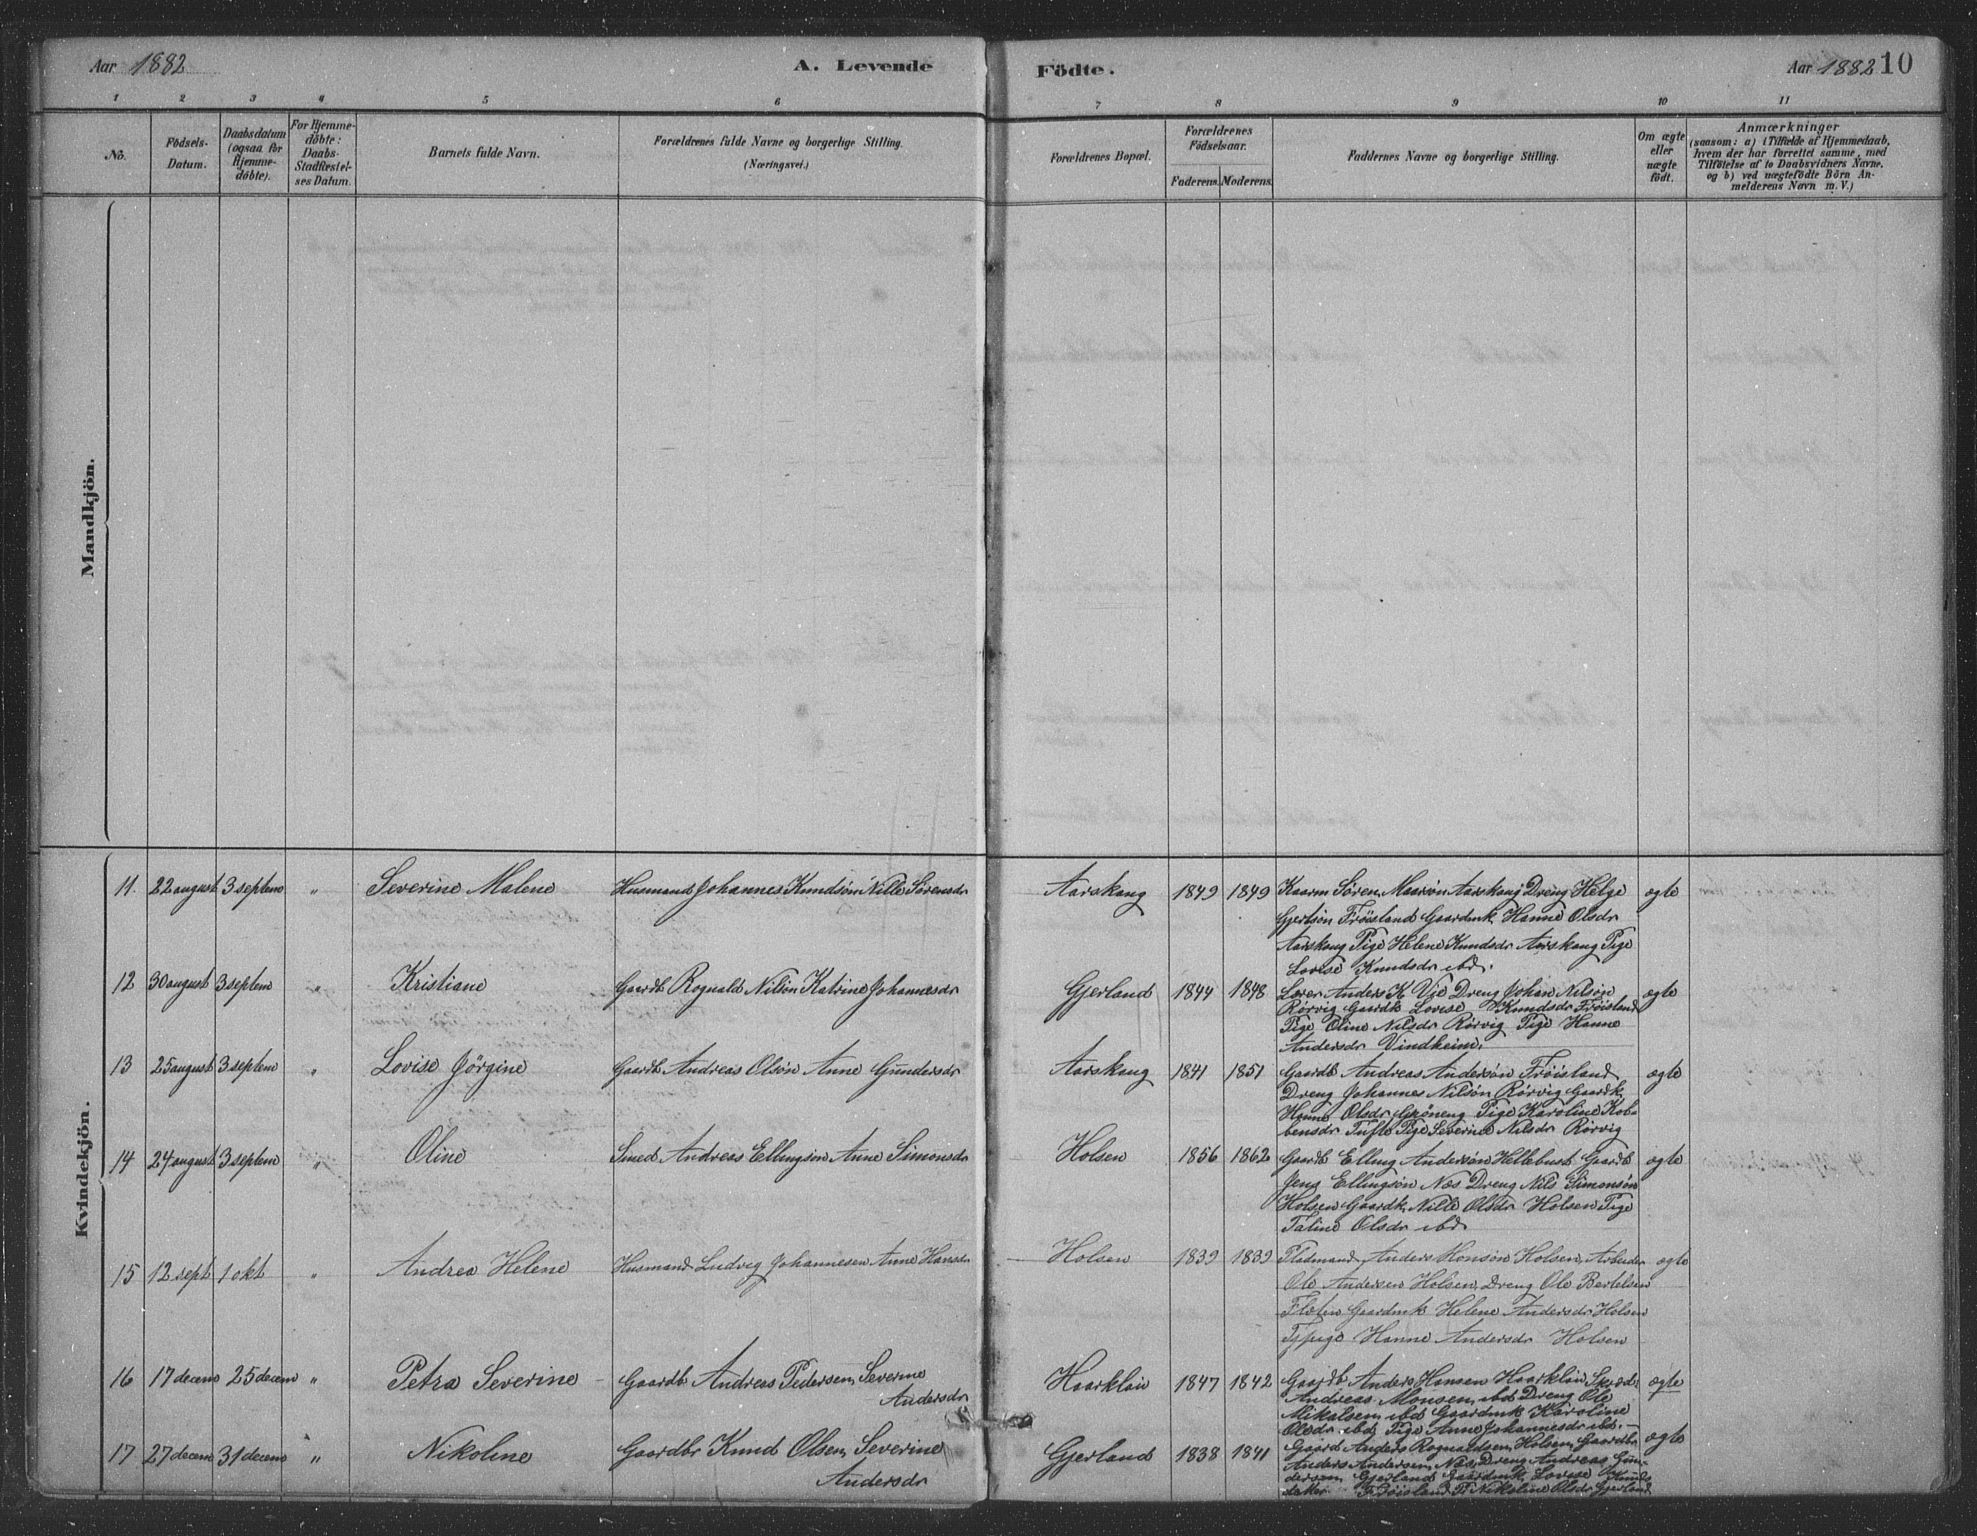 Aar 1882
A. Levende
Födte.
Aar 1882 10
1 2 3 4 5 6 7 8 9 10 11
No.
Födsels-
Datum.
Daabsdatum
(ogsaa for
Hjemme-
döbte).
For Hjemme-
döbte:
Daabs-
Stadfæstel-
ses Datum.
Barnets fulde Navn.
Forældrenes fulde Navne og borgerlige Stilling.
(Næringsvei.)
Forældrenes Bopæl.
Forældrenes
Födselsaar.
Faderens. Moderens.
Faddernes Navne og borgerlige Stilling.
Om ægte
eller
uægte
födt.
Anmærkninger
(saasom: a) i Tilfælde af Hjemmedaab,
hvem der har forrettet samme, med
Tilföielse af to Daabsvidners Navne,
og b) ved uægtefödte Börn An-
melderens Navn m. V.)
Mandkjön.
Kvindekjön.
11. 22 august 3 septem " Severine Malene Husmand Johannes Knudsön Nille Sörensdr Aarskaug 1849 1849 Kaarm Sören Maasön Aarskaug Dreng Helge ægte
Gjertsön Fröisland Gaardmk Hanne Olsdr
Aarskaug Pige Helene Knudsdr Aarskaug Pige
Lovise Knudsdr ibd.
12 30 august 3 septem " Kristiane Gaardb Rognald Nilsön Katrine Johannesdr Gjerland 1844 1848 Lærer Anders K Vie Dreng Johan Nilsön ægte
Rörvig Gaardk Lovise Knudsdr Fröisland
Pige Oline Nilsdr Rörvig Pige Hanne
Andersdr Vindheim.
13 25 august 3 septem " Lovise Jörgine Gaardb Andreas Olsön Anne Gundersdr Aarskaug 1841 1851 Gaardb Andreas Andersön Fröisland ægte
Dreng Johannes Nilsön Rörvig Gaardk
Hanne Olsdr Gröneng Pige Karoline Kob-
bensdr Tufte Pige Severine Nilsdr Rörvig
14 24 august 3 septem " Oline Smed Andreas Ellingsön Anne Simonsdr Holsen 1856 1862 Gaardb Elling Andersön Hellebust Gaardb ægte
Jens Ellingsön Næs Dreng Nils Simonsön
Holsen Gaardk Nille Olsdr Holsen Pige
Taline Olsdr ibd
15 12 sept 1 okt " Andrea Helene Husmand Ludvig Johannesen Anne Hansdr Holsen 1839 1839 Anders Monsön Holsen, Arbeider ægte
Ole Andersen Holsen, Dreng Ole Bertelsen
Flöten Gaardmk Helene Andersdr Holsen
Hanne Andersdr Holsen
16 17 decem 25 decem " Petra Severine Gaardb Andreas Pedersen, Severine Haarklau 1847 1842 Gaardb Anders Hansen Haarklau, ægte
Andersdr
Andreas Monsen, ibd Dreng Ole
Mikalsen, ibd Gaardmk Karoline
Olsdr ibd, Pige Anne Johannesdr ibd.
17 27 decem 31 decem " Nikoline Gaardbr Knud Olsen, Severine Gjerland 1838 1841 Gaardb Anders Rognaldsen, Holsen, Gaardbr ægte
Andersdr
Anders Andersen, Næs, Dreng Andreas Gun-
dersen Gjerland Gaardmk Lovise Knuds-
datter Fröisland P. Nikoline Olsdr Gjerland